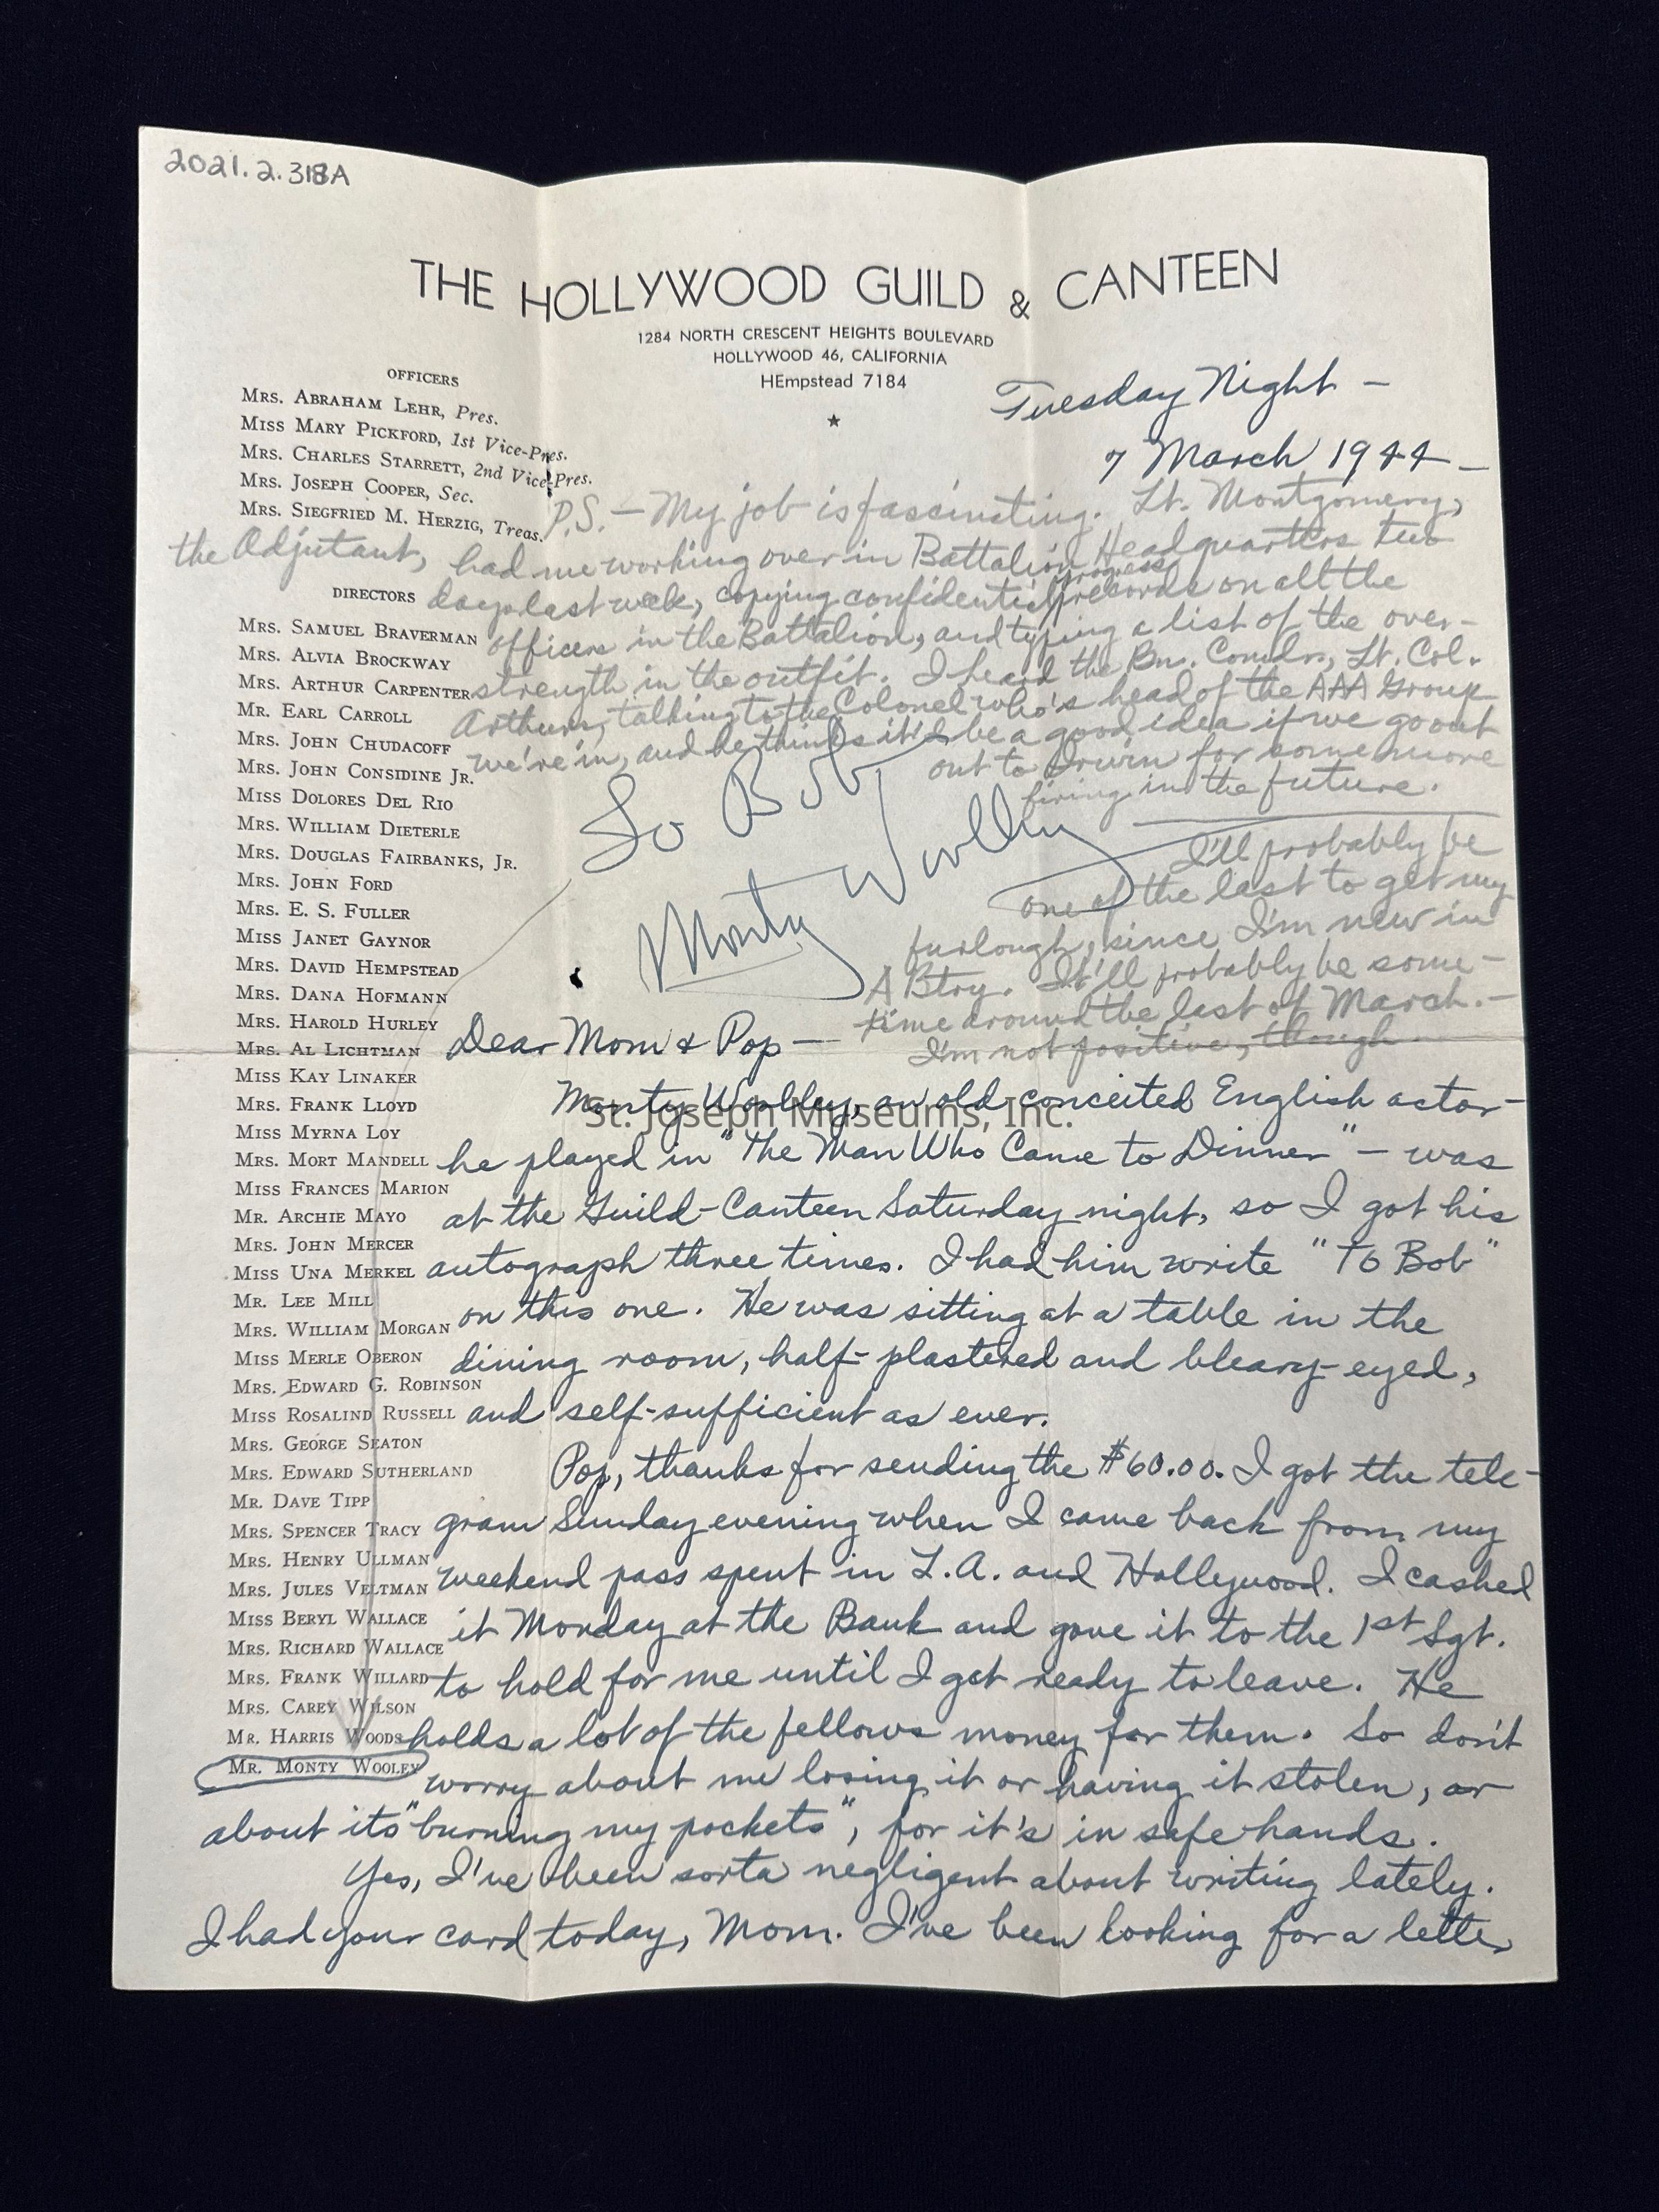 2021.2.318A
THE HOLLYWOOD GUILD & CANTEEN
1284 NORTH CRESCENT HEIGHTS BOULEVARD
HOLLYWOOD 46, CALIFORNIA
HEmpstead 7184
★
OFFICERS
MRS. ABRAHAM LEHR, Pres.
MISS MARY PICKFORD, 1st Vice-Pres.
MRS. CHARLES STARRETT, 2nd Vice-Pres.
MRS. JOSEPH COOPER, Sec.
MRS. SIEGFRIED M. HERZIG, Treas.
DIRECTORS
MRS. SAMUEL BRAVERMAN
MRS. ALVIA BROCKWAY
MRS. ARTHUR CARPENTER
MR. EARL CARROLL
MRS. JOHN CHUDACOFF
MRS. JOHN CONSIDINE JR.
MISS DOLORES DEL RIO
MRS. WILLIAM DIETERLE
MRS. DOUGLAS FAIRBANKS, JR.
MRS. JOHN FORD
MRS. E. S. FULLER
MISS JANET GAYNOR
MRS. DAVID HEMPSTEAD
MRS. DANA HOFMANN
MRS. HAROLD HURLEY
MRS. AL LICHTMAN
MISS KAY LINAKER
MRS. FRANK LLOYD
MISS MYRNA LOY
MRS. MORT MANDELL
MISS FRANCES MARION
MR. ARCHIE MAYO
MRS. JOHN MERCER
MISS UNA MERKEL
MR. LEE MILL
MRS. WILLIAM MORGAN
MISS MERLE OBERON
MRS. EDWARD G. ROBINSON
MISS ROSALIND RUSSELL
MRS. GEORGE SEATON
MRS. EDWARD SUTHERLAND
MR. DAVE TIPP
MRS. SPENCER TRACY
MRS. HENRY ULLMAN
MRS. JULES VELTMAN
MISS BERYL WALLACE
MRS. RICHARD WALLACE
MRS. FRANK WILLARD
MRS. CAREY WILSON
MR. HARRIS WOODS
MR. MONTY WOOLEY
Tuesday Night –
7 March 1944 –
P.S. – My job is fascinating. Lt. Montgomery,
the Adjutant, had me working over in Battalion Headquarters two
days last week, copying confidential progress records on all the
officers in the Battalion, and typing a list of the over-
strength in the outfit. I heard the Bn. Comdr., Lt. Col.
Arthurs, talking to the Colonel who's head of the AAA Group
we're in, and he thinks it'd be a good idea if we go out
out to Irwin for some more
firing in the future.
I'll probably be
one of the last to get my
furlough, since I'm new in
A Btry. It'll probably be some-
time around the last of March. –
I'm not positive, though.
To Bob
Monty Woolley
Dear Mom & Pop —
Monty Woolley, an old conceited English actor –
he played in "The Man Who Came to Dinner" – was
at the Guild-Canteen Saturday night, so I got his
autograph three times. I had him write "To Bob"
on this one. He was sitting at a table in the
dining room, half-plastered and bleary-eyed,
and self-sufficient as ever.
Pop, thanks for sending the $60.00. I got the tele-
gram Sunday evening when I came back from my
weekend pass spent in L.A. and Hollywood. I cashed
it Monday at the Bank and gave it to the 1st Sgt.
to hold for me until I get ready to leave. He
holds a lot of the fellows money for them. So don't
worry about me losing it or having it stolen, or
about its "burning my pockets", for it's in safe hands.
Yes, I've been sorta negligent about writing lately.
I had your card today, Mom. I've been looking for a letter
St. Joseph Museums, Inc.